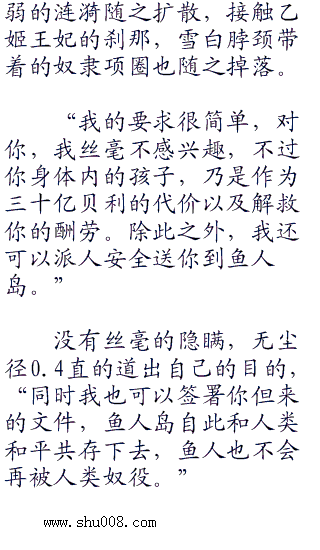 弱的涟漪随之扩散，接触乙
姬王妃的刹那，雪白脖颈带
着的奴隶项圈也随之掉落。
“我的要求很简单，对
你，我丝毫不感兴趣，不过
你身体内的孩子，乃是作为
三十亿贝利的代价以及解救
你的酬劳。除此之外，我还
可以派人安全送你到鱼人
岛。”
没有丝毫的隐瞒，无尘
径0.4直的道出自己的目的，
“同时我也可以签署你但来
的文件，鱼人岛自此和人类
和平共存下去，鱼人也不会
再被人类奴役。”
www.shu008.com